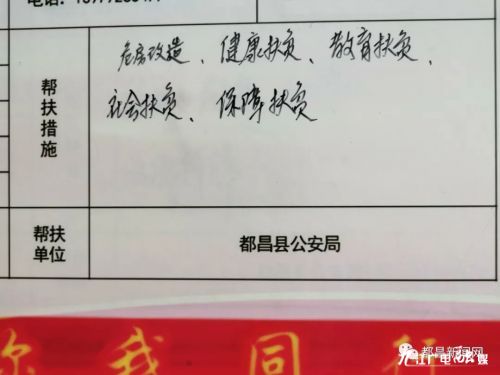 电话:
帮扶措施
危房改造、健康扶贫、教育扶贫、
社会扶贫、保障扶贫
帮扶单位
都昌县公安局
你我同行
都昌新闻网
九江广电传媒